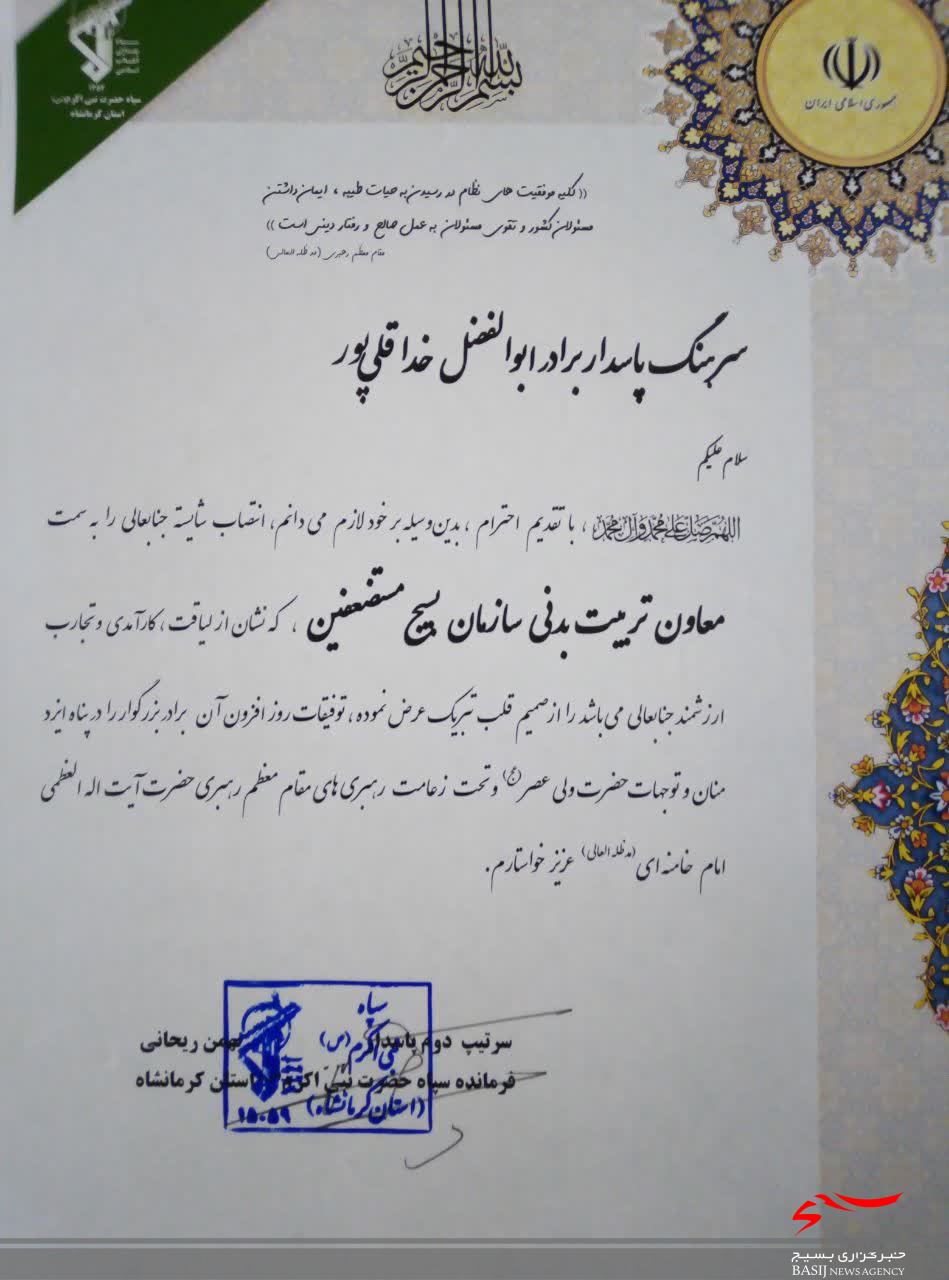 بسم الله الرحمن الرحیم
جمهوری اسلامی ایران
سپاه حضرت نبی اکرم (ص)
استان کرمانشاه
(( کلیه موفقیت های نظام در رسیدن به حیات طیبه ، ایمان داشتن
مسئولان کشور و تقوی مسئولان به عمل صالح و رفتار دینی است ))
مقام معظم رهبری (مد ظله العالی)
سرهنگ پاسدار برادر ابوالفضل خداقلی پور
سلام علیکم
اللهم صل علی محمد و آل محمد ، با تقدیم احترام ، بدین وسیله بر خود لازم می دانم، انتصاب شایسته جنابعالی را به سمت
معاون تربیت بدنی سازمان بسیج مستضعفین ، که نشان از لیاقت ، کارآمدی و تجارب
ارزشمند جنابعالی می باشد را از صمیم قلب تبریک عرض نموده ، توفیقات روز افزون آن برادر بزرگوار را در پناه ایزد
منان و توجهات حضرت ولی عصر (عج) و تحت زعامت رهبری های مقام معظم رهبری حضرت آیت اله العظمی
امام خامنه ای (مد ظله العالی) عزیز خواستارم.
سرتیپ دوم پاسدار بهمن ریحانی
فرمانده سپاه حضرت نبی اکرم (ص) استان کرمانشاه
سپاه
نبی اکرم (ص)
(استان کرمانشاه)
۱۵۰۵۹
خبرگزاری بسیج
BASIJ NEWS AGENCY